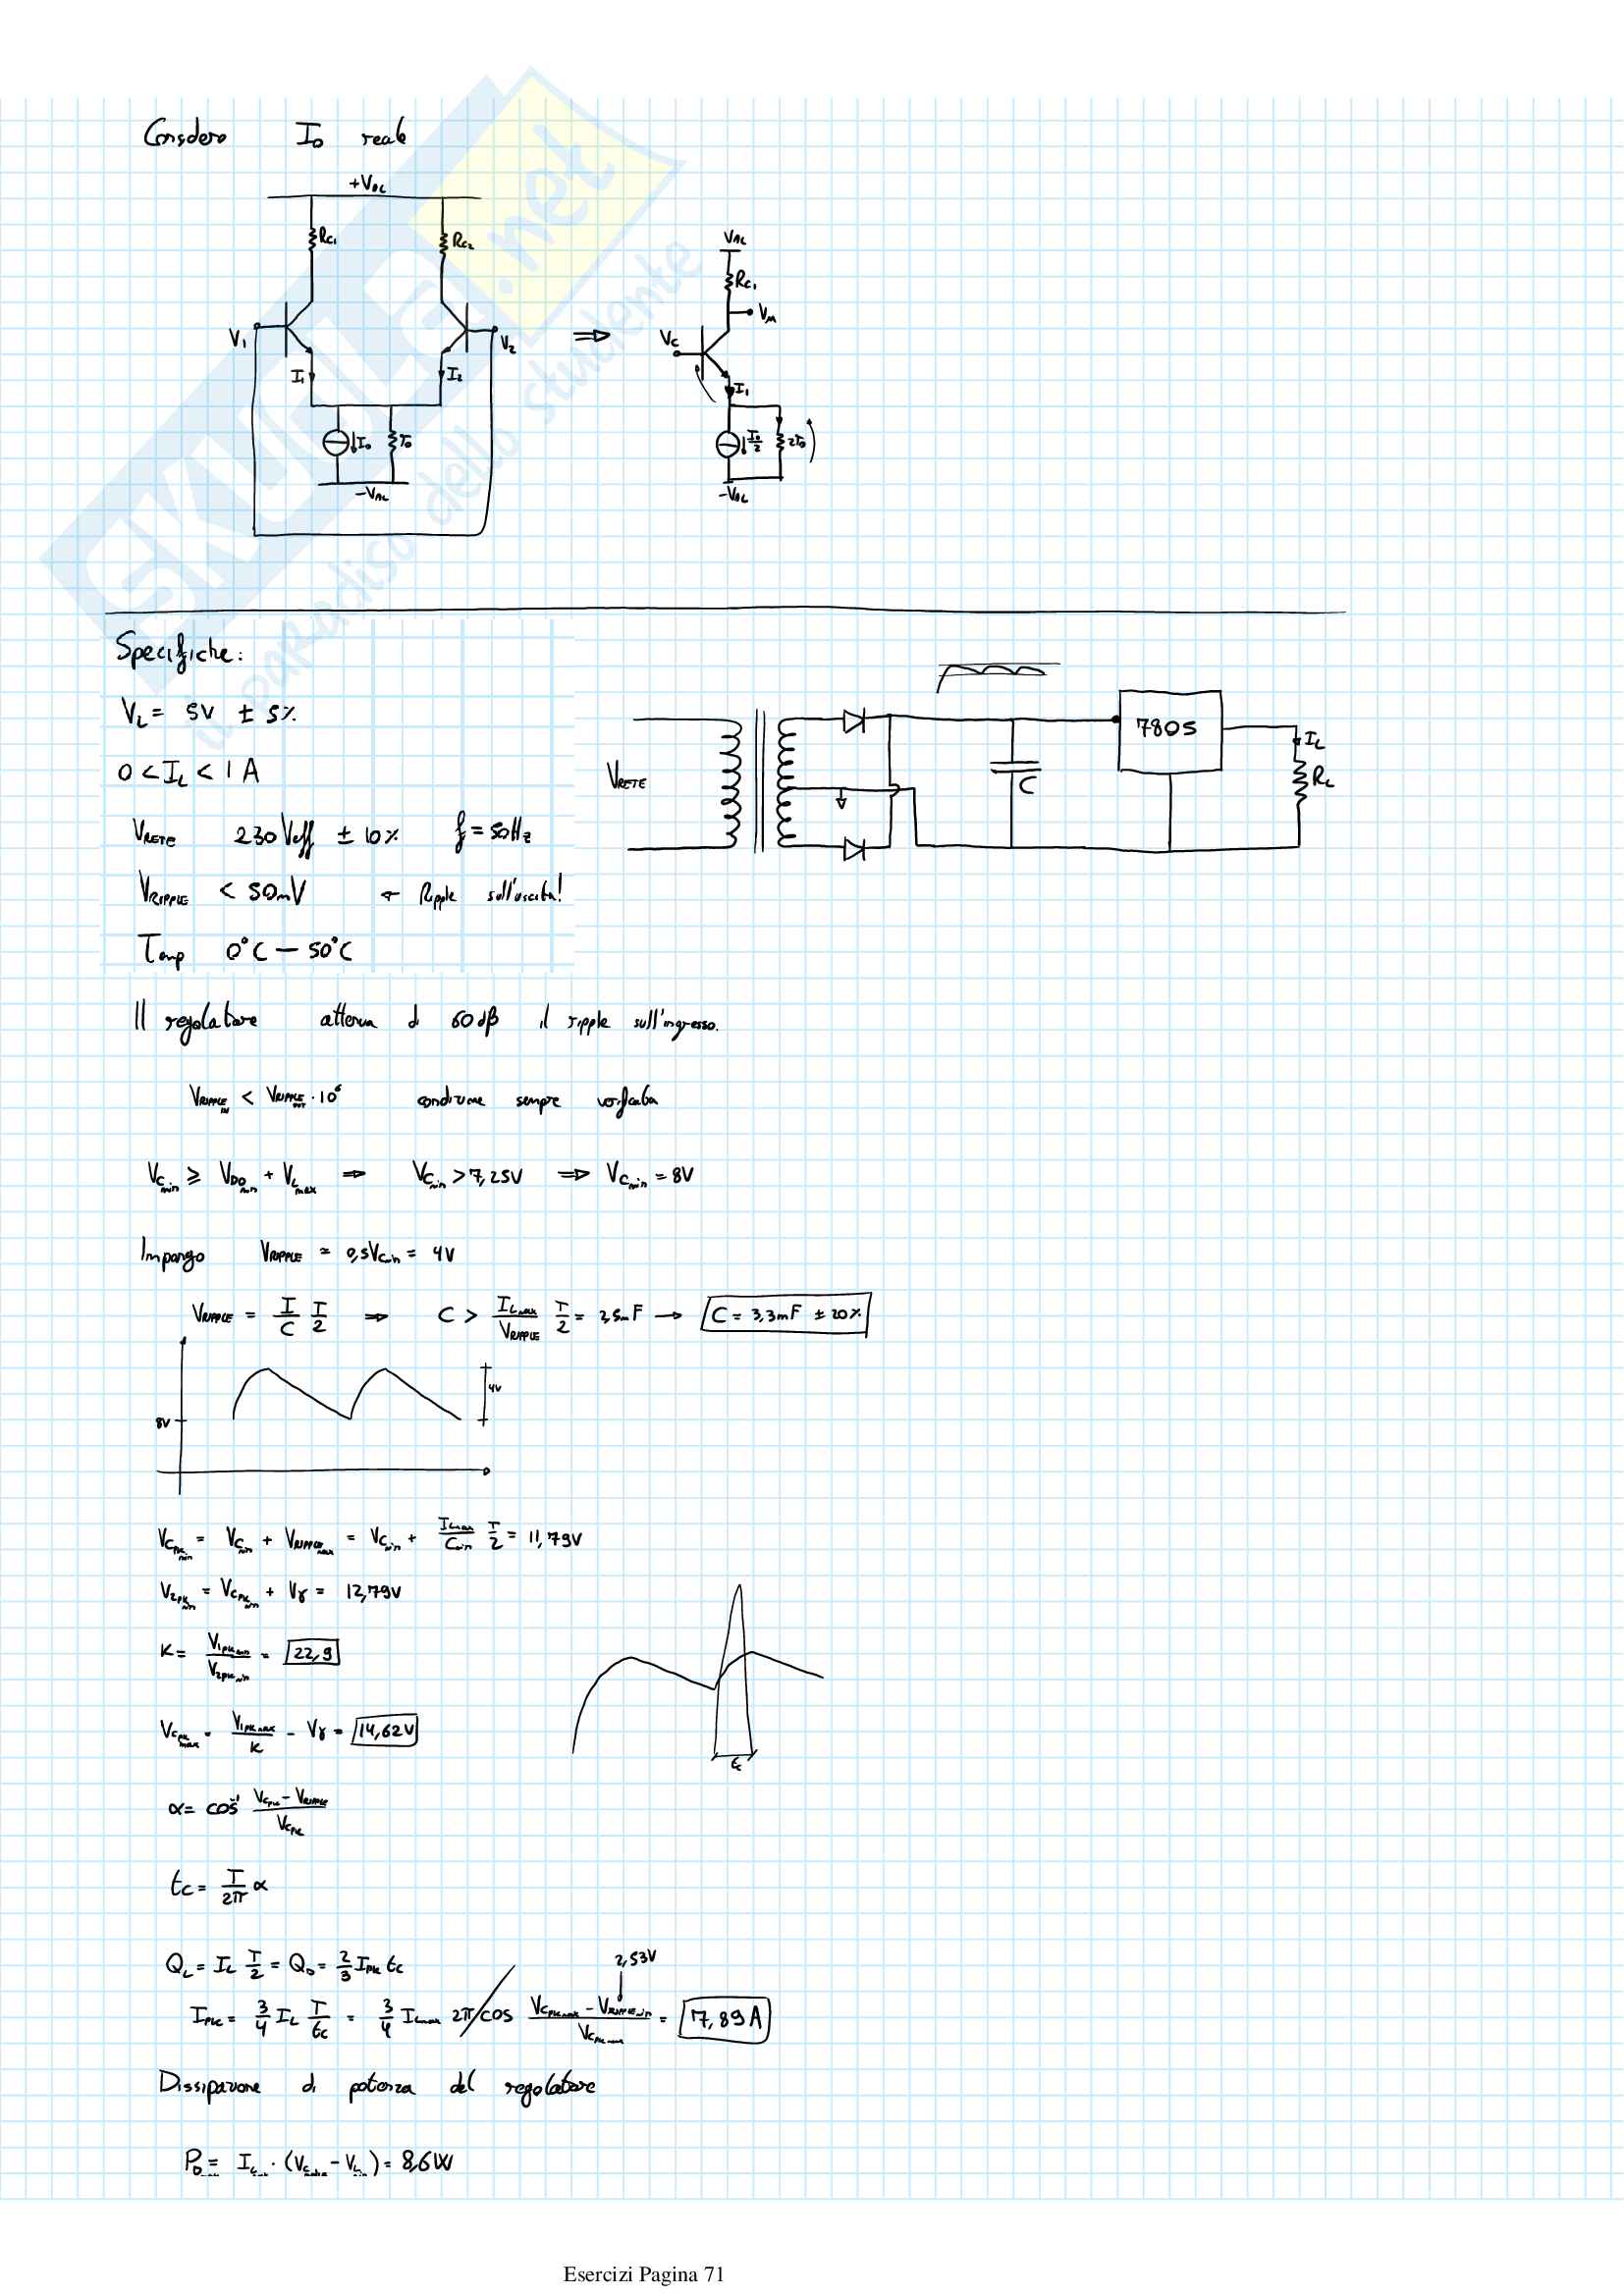 Considero I₀ reale
+V_AL
R_C1 R_C2
V_AL
R_C1
V_M
V₁ V₂ ⇒ V_C
I₁ I₂ I₁
I₀ r₀ I₀/2 2r₀
-V_AL -V_AL
SKUOLA.net
il paradiso dello studente
Specifiche:
V_L = 5V ± 5%
7805
I_L
0 < I_L < 1A
V_RETE C R_L
V_RETE 230 Veff ± 10% f = 50Hz
V_RIPPLE < 50mV ← Ripple sull'uscita!
Tamp 0°C — 50°C
Il regolatore attenua di 60dB il ripple sull'ingresso.
V_RIPPLE_IN < V_RIPPLE_OUT · 10⁶ condizione sempre verificata
V_Cmin ≥ V_DOmin + V_Lmax ⇒ V_Cmin > 7,25V ⇒ V_Cmin = 8V
Impongo V_RIPPLE ≃ 0,5V_Cmin = 4V
V_RIPPLE = I/C T/2 ⇒ C > I_Lmax/V_RIPPLE T/2 = 2,5mF → C = 3,3mF ± 20%
4V
8V
V_CPKmin = V_Cmin + V_RIPPLEmax = V_Cmin + I_Lmax/C_min T/2 = 11,79V
V_2PKmin = V_CPKmin + Vγ = 12,79V
K = V_1PKmin/V_2PKmin = 22,9
V_CPKmax = V_1PKmax/K - Vγ = 14,62V
t_c
α = cos⁻¹ (V_CPK - V_RIPPLE)/V_CPK
t_C = T/2π α
2,53V
Q_L = I_L T/2 = Q_D = 2/3 I_PK t_C
I_PK = 3/4 I_L T/t_C = 3/4 I_Lmax 2π/cos (V_CPKmax - V_RIPPLEmin)/V_CPKmax = 7,89A
Dissipazione di potenza del regolatore
P_D = I_L · (V_C - V_L) = 8,6W
Esercizi Pagina 71